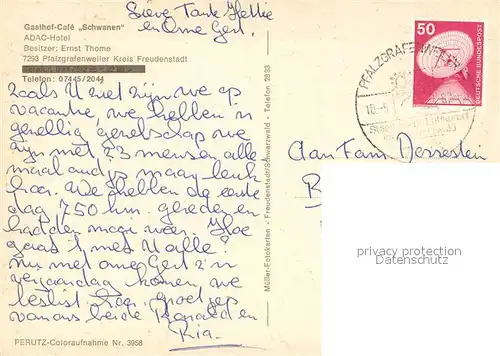 Gasthof-Café „Schwanen"
ADAC-Hotel
Besitzer: Ernst Thome
7293 Pfalzgrafenweiler Kreis Freudenstadt
Telefon: 07445/2044
Lieve Tante Hettie
en Ome Gert.
zoals U ziet zijn we op
vacantie, we hebben 'n
gezellig gezelschap we
zijn met 53 mensen alle
maal
leuk
hoor. We hebben de eerste
dag 750 km. gereden en
hadden mooi weer. Hoe
gaat 't met U alle?
Nu met ome Gert z'n
verjaardag komen we
beslist hoor, groetjes
van ons beide Ronald en
Ria.
PERUTZ-Coloraufnahme Nr. 3958
Müller-Fotokarten - Freudenstadt/Schwarzwald - Telefon 2633
PFALZGRAFENWEILER
50
DEUTSCHE BUNDESPOST
Aan Fam.
B
privacy protection
Datenschutz